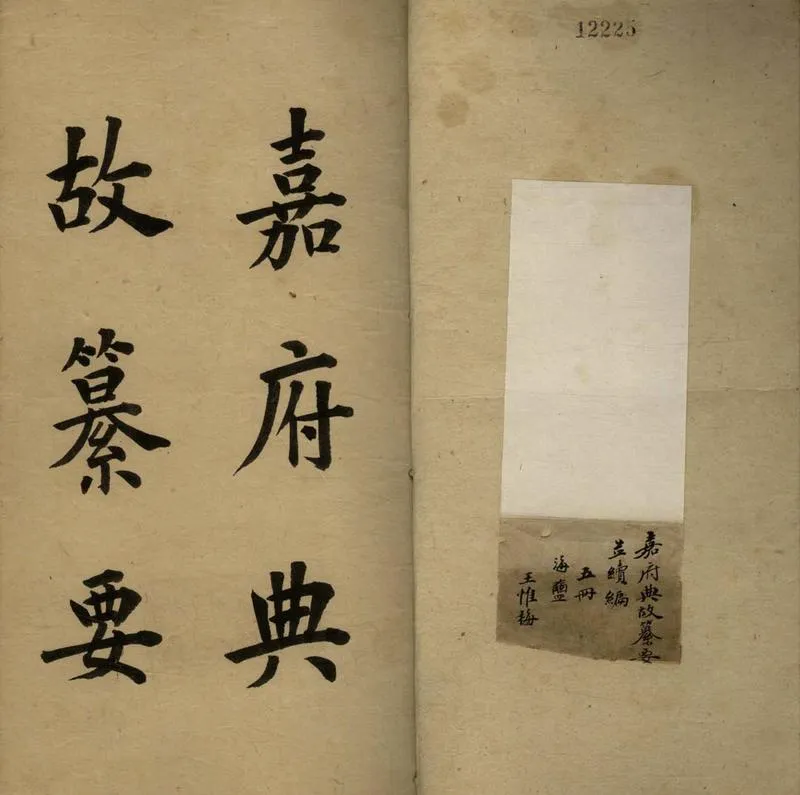 嘉府典
故纂要
12225
嘉府典故纂要
並續編
五冊
海鹽
王惟梅